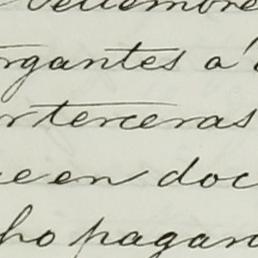 Setiembre
rgantes a'
r terceras
e en doc
ho pagar